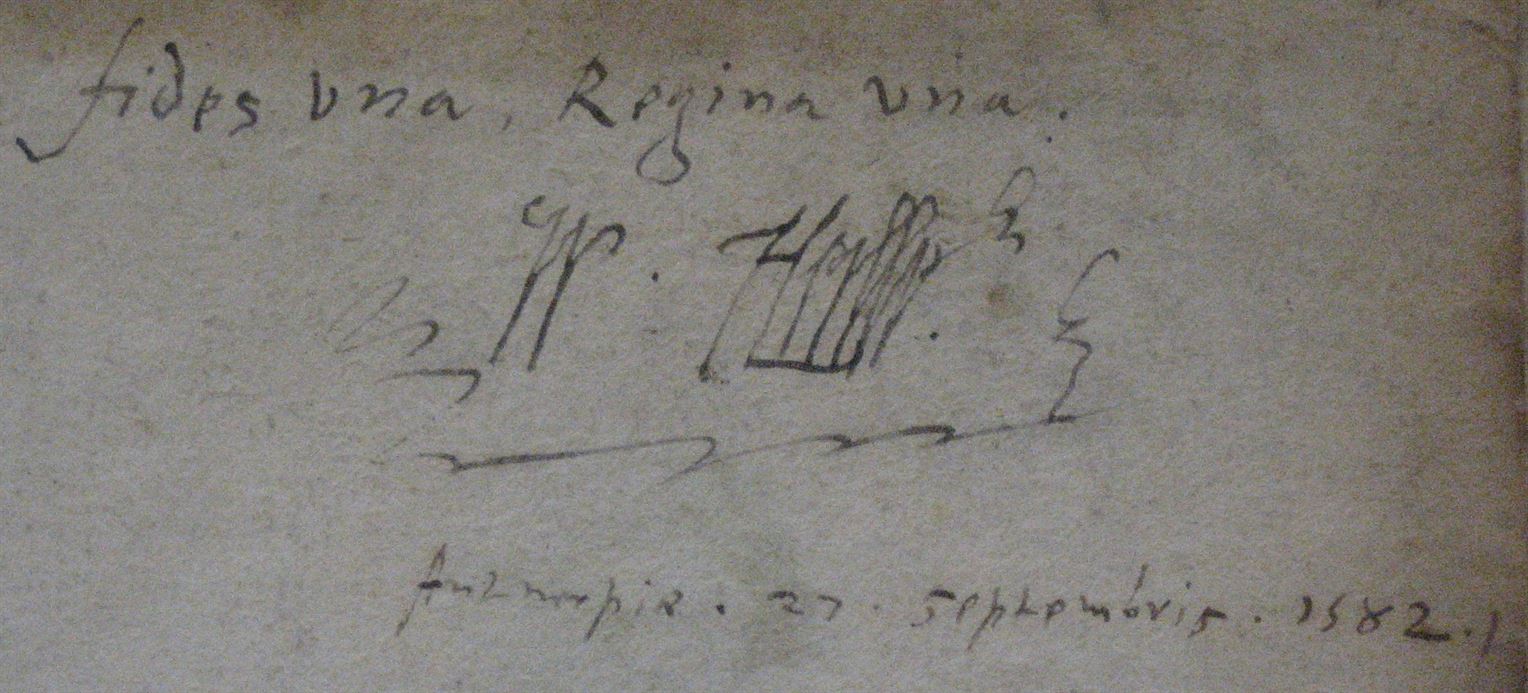 fides vna, Regina vna.
W.
Antwerpiæ. 27. septembris. 1582.